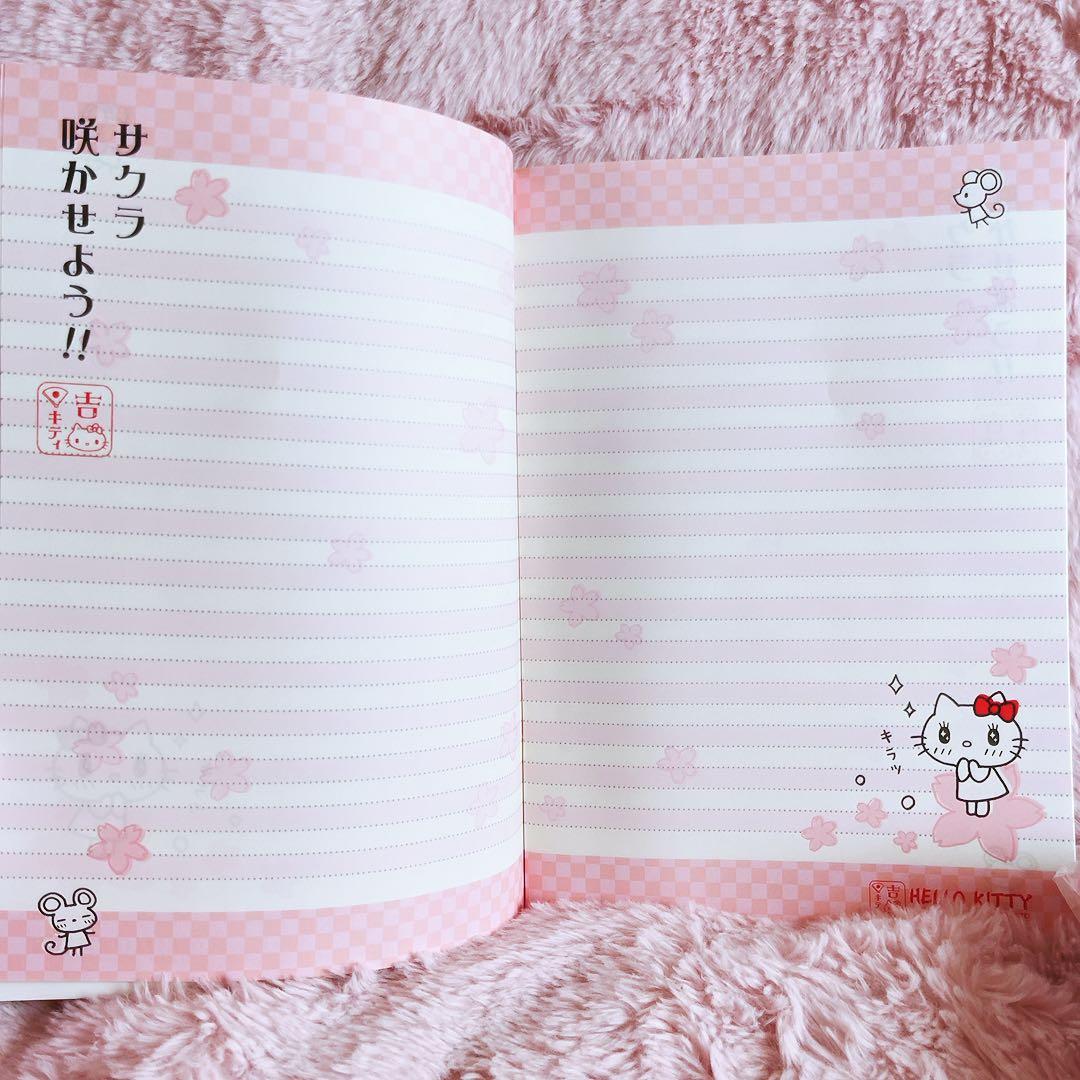 サクラ
咲かせよう!!
吉
キティ
キラッ
吉
キティ
HELLO KITTY